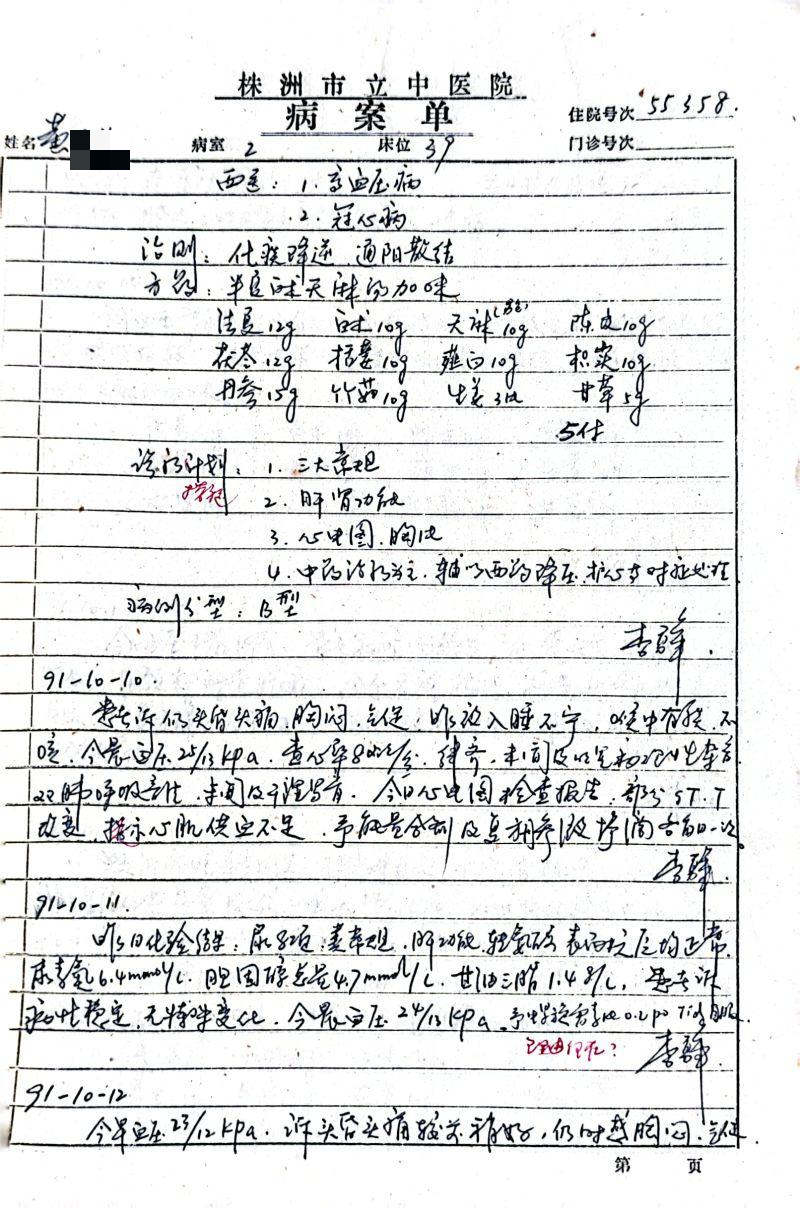 株洲市立中医院
病案单
住院号次 55358.
姓名 黄 病室 2 床位 39 门诊号次
西医：1. 高血压病
2. 冠心病
治则：化痰降逆 通阳散结
方药：半夏白术天麻汤加味
法夏12g 白术10g 天麻10g 陈皮10g
茯苓12g 括蒌10g 薤白10g 枳实10g
丹参15g 竹茹10g 生姜3片 甘草5g
5付
诊疗计划：1. 三大常规
2. 肝肾功能
3. 心电图、胸片
4. 中药治疗为主，辅以西药降压、护心等对症处理
病例分型：B型
李
91-10-10
患者诉仍头昏头痛，胸闷，气促，昨夜入睡不宁，喉中有痰，不
咳，今晨血压25/13 kPa. 查心率80次/分，律齐，未闻及 杂音
双肺呼吸音 ，未闻及干湿罗音。今日心电图检查报告：部分ST.T
改变，提示心肌供血不足。予能量合剂及复方丹参液静滴各每日一次。
李
91-10-11.
昨日化验结果：尿 项，粪常规，肝功能， 表面抗原均正常.
尿素氮6.4mmol/L. 胆固醇总量4.7mmol/L. 甘油三脂1.4 /L. 患者诉
病性稳定，无特殊变化. 今晨血压24/13 kPa.
李
91-10-12
今早血压23/12 kPa. 诉头昏头痛较前稍好，仍时感胸闷，气促
第 页